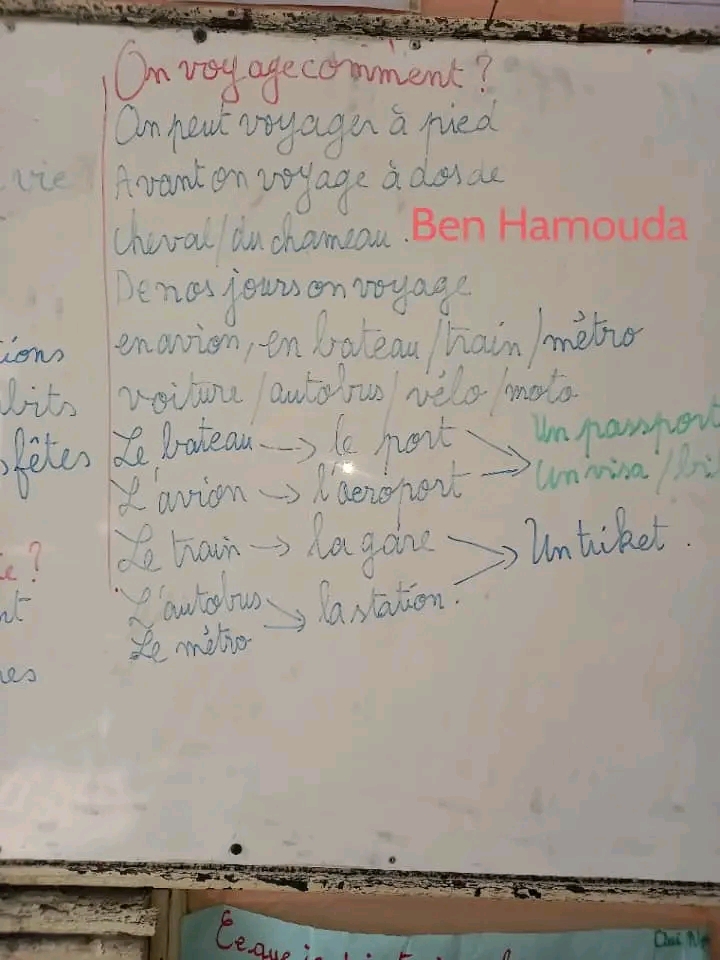 On voyage comment ?
On peut voyager à pied
Avant on voyage à dos de
cheval / du chameau .
Ben Hamouda
De nos jours on voyage
en avion, en bateau / train / métro
voiture / autobus / vélo / moto
Le bateau → le port
L'avion → l'aeroport
Un passport
Un visa /
Le train → la gare
Un ticket .
L'autobus
Le métro → la station .
vie
ions
bits
fêtes
e ?
nt
res